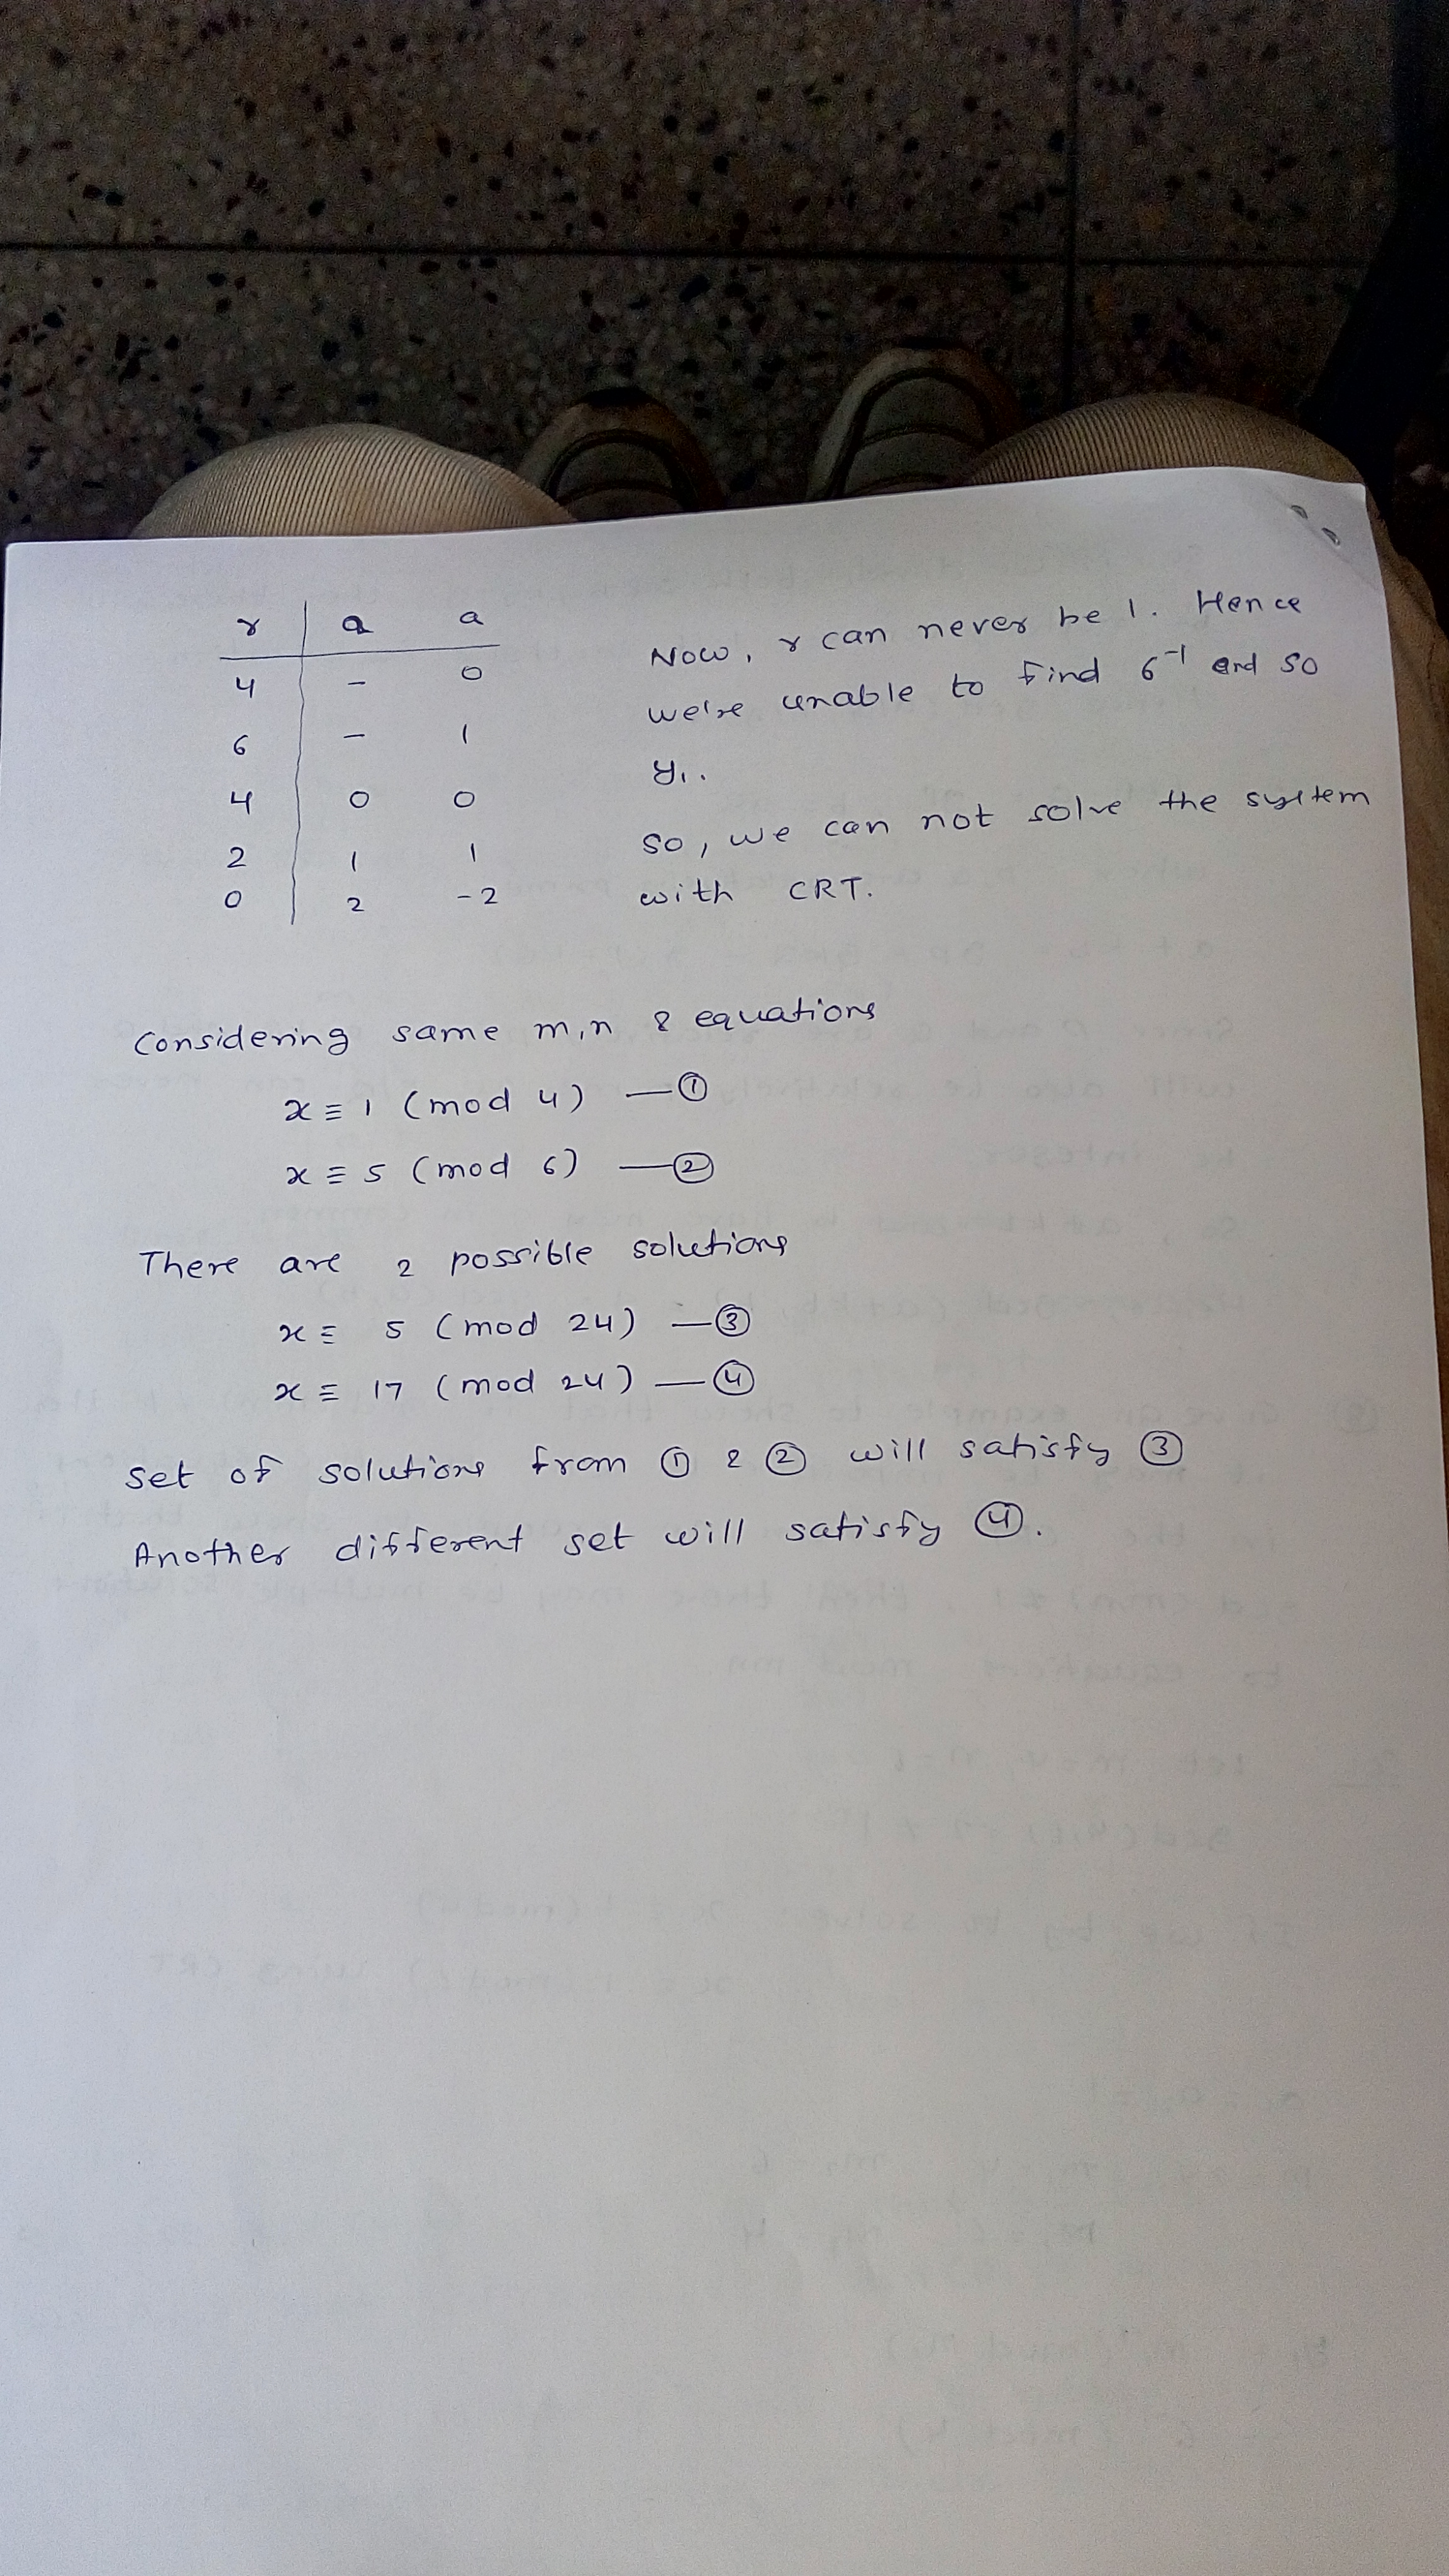 r Q a
4 - 0
6 - 1
4 0 0
2 1 1
0 2 -2
Now, r can never be 1. Hence
we're unable to find 6⁻¹ and so
y₁.
So, we can not solve the system
with CRT.
Considering same m,n & equations
x ≡ 1 (mod 4) —①
x ≡ 5 (mod 6) —②
There are 2 possible solutions
x ≡ 5 (mod 24) —③
x ≡ 17 (mod 24) —④
set of solutions from ① & ② will satisfy ③
Another different set will satisfy ④.